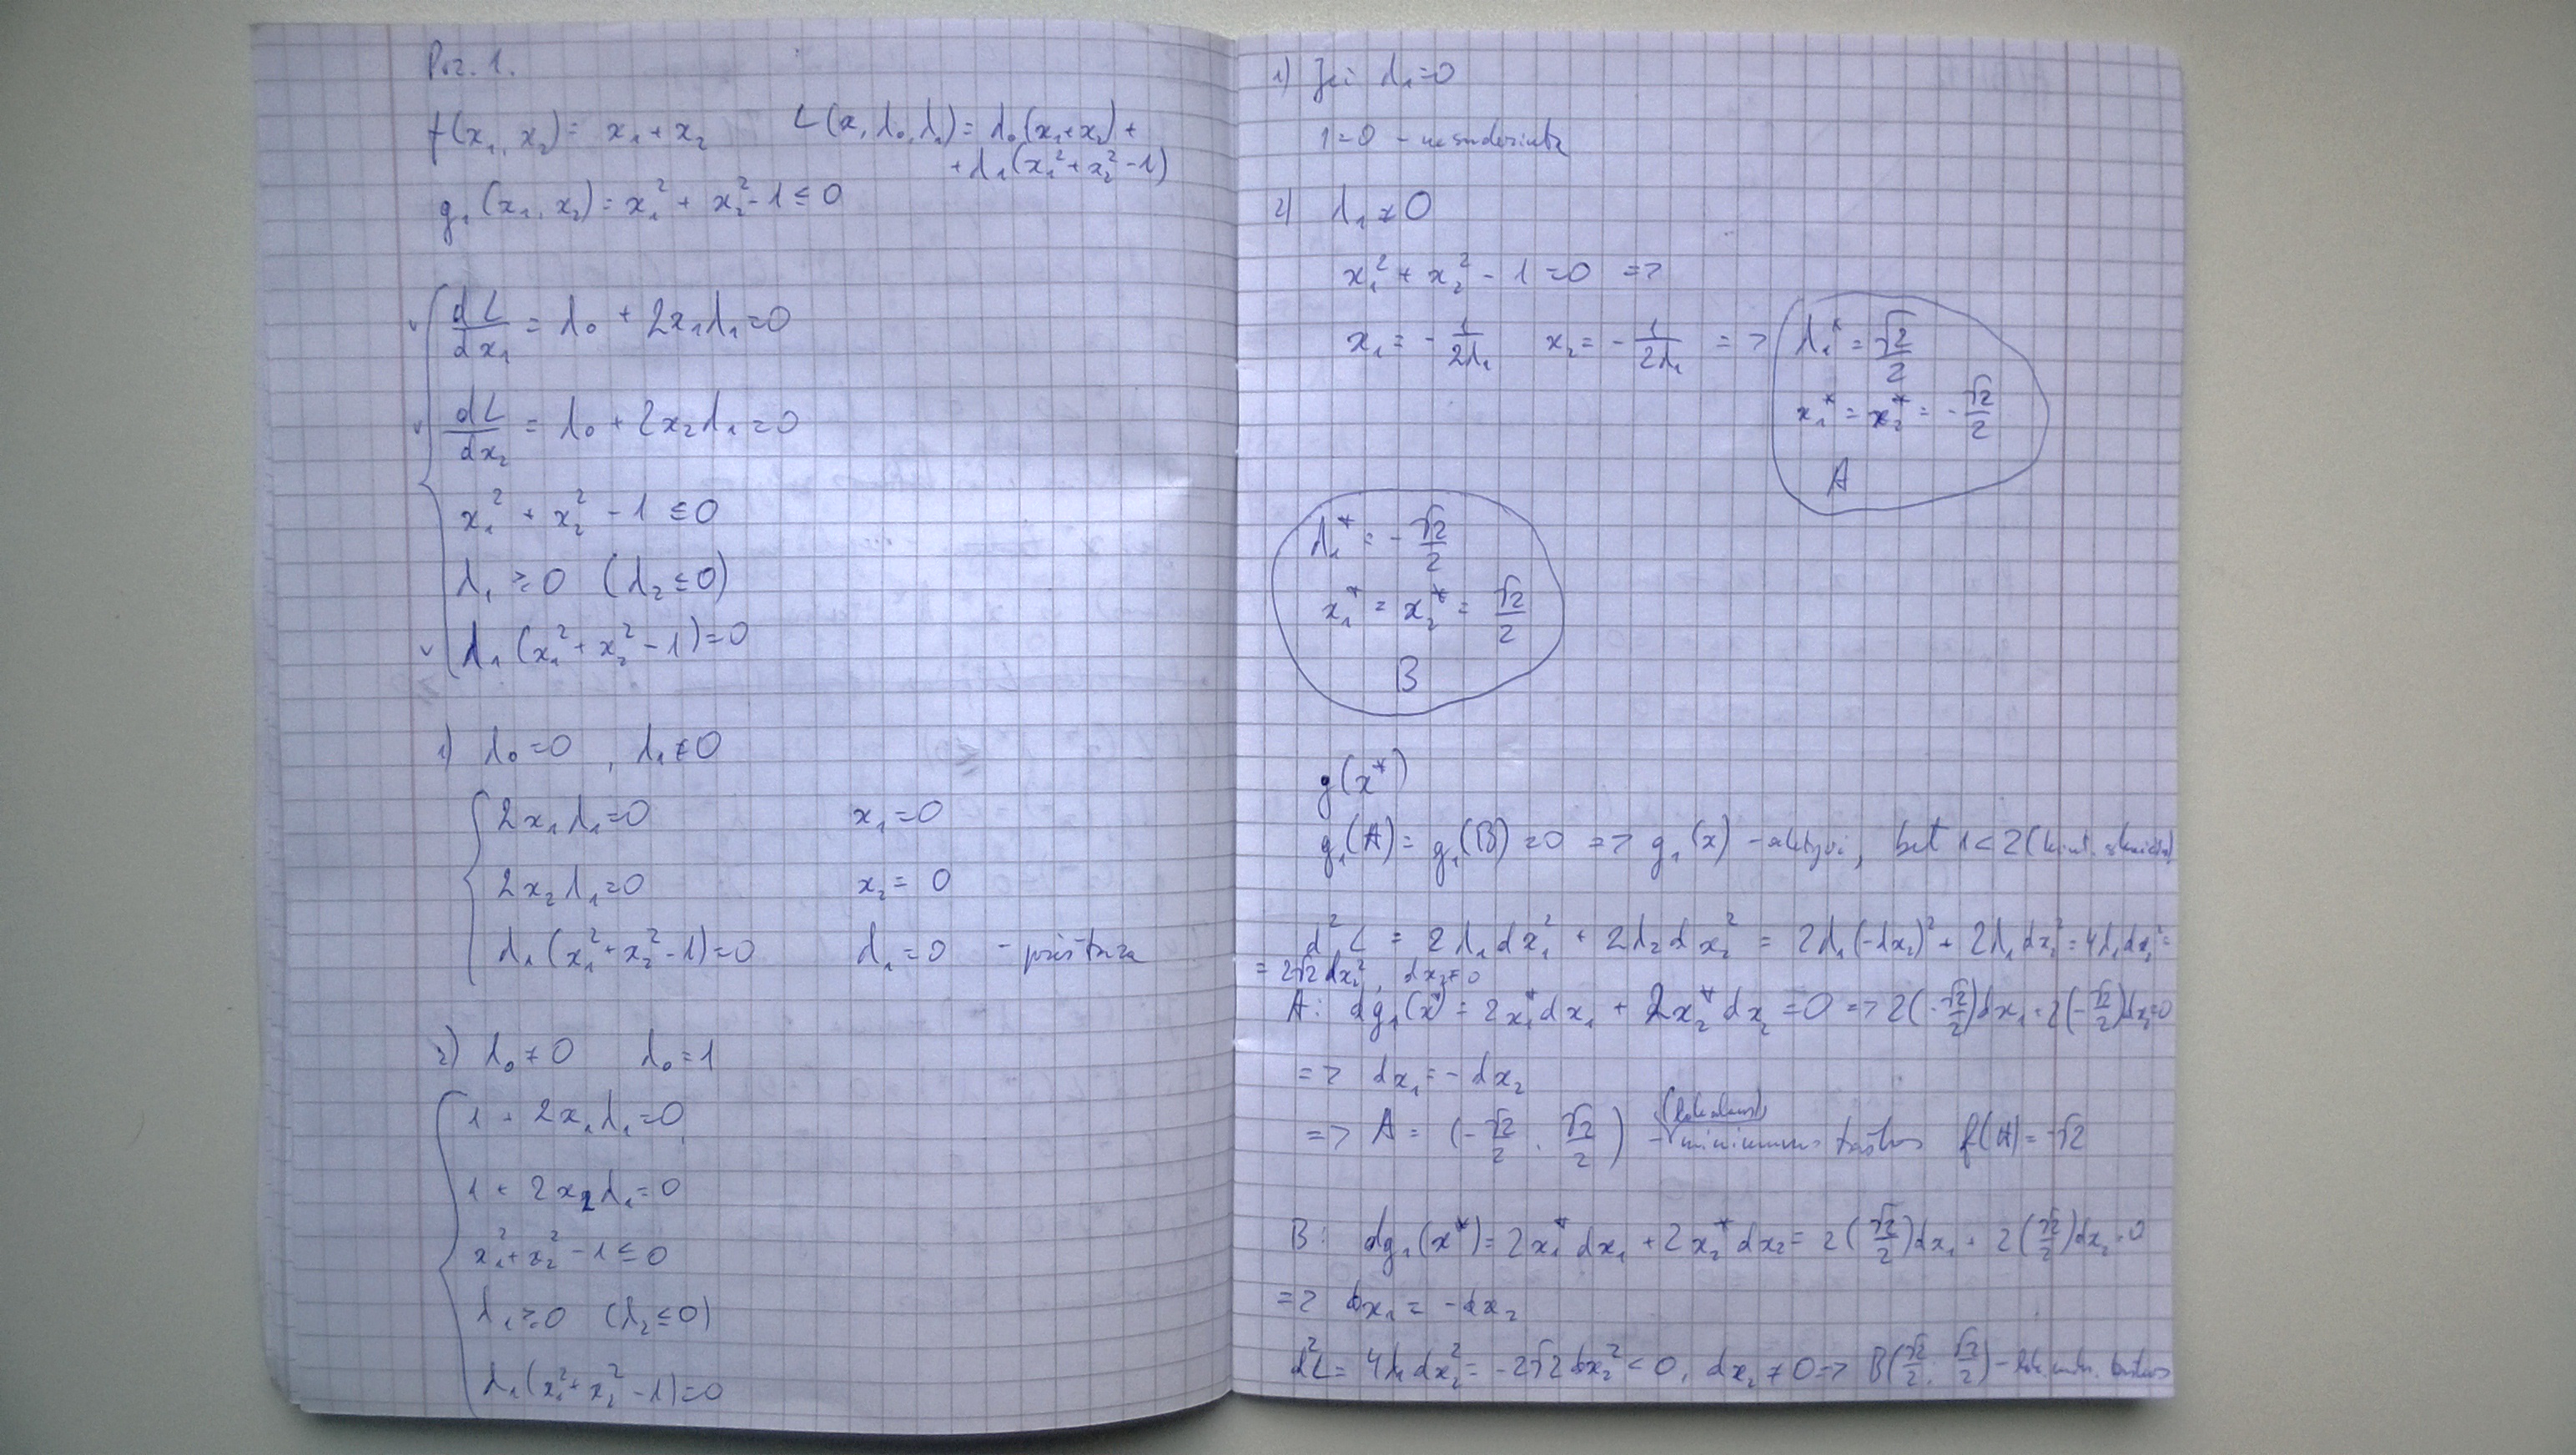 Paz. 1.
f(x₁, x₂) = x₁ + x₂    L(x, λ₀, λ₁) = λ₀(x₁+x₂) +
+ λ₁(x₁² + x₂² - 1)
g₁(x₁, x₂) = x₁² + x₂² - 1 ≤ 0
dL/dx₁ = λ₀ + 2x₁λ₁ = 0
dL/dx₂ = λ₀ + 2x₂λ₁ = 0
x₁² + x₂² - 1 ≤ 0
λ₁ ≥ 0 (λ₂ ≤ 0)
λ₁(x₁² + x₂² - 1) = 0
1) λ₀ = 0, λ₁ ≠ 0
2x₁λ₁ = 0    x₁ = 0
2x₂λ₁ = 0    x₂ = 0
λ₁(x₁² + x₂² - 1) = 0    λ₁ = 0 - prieštara
2) λ₀ ≠ 0    λ₀ = 1
1 + 2x₁λ₁ = 0
1 + 2x₂λ₁ = 0
x₁² + x₂² - 1 ≤ 0
λ₁ ≥ 0 (λ₂ ≤ 0)
λ₁(x₁² + x₂² - 1) = 0
1) Jei λ₁ = 0
1 = 0 - nesuderinta
2) λ₁ ≠ 0
x₁² + x₂² - 1 = 0 =>
x₁ = - 1/2λ₁    x₂ = - 1/2λ₁ => λ₁* = √2/2
x₁* = x₂* = - √2/2
A
λ₁* = - √2/2
x₁* = x₂* = √2/2
B
g(x*)
g₁(A) = g₁(B) = 0 => g₁(x) - aktyvi, bet 1 < 2 (kint. skaičių)
d²L = 2λ₁dx₁² + 2λ₂dx₂² = 2λ₁(-dx₂)² + 2λ₁dx₂² = 4λ₁dx₂² =
= 2√2dx₂², dx₂ ≠ 0
A: dg₁(x*) = 2x₁*dx₁ + 2x₂*dx₂ = 0 => 2(-√2/2)dx₁ + 2(-√2/2)dx₂ = 0
=> dx₁ = - dx₂
=> A = (-√2/2, √2/2) - (lokalaus) minimumo taškas f(A) = -√2
B: dg₁(x*) = 2x₁*dx₁ + 2x₂*dx₂ = 2(√2/2)dx₁ + 2(√2/2)dx₂ = 0
=> dx₁ = -dx₂
d²L = 4λ₁dx₂² = -2√2dx₂² < 0, dx₂ ≠ 0 => B(√2/2, √2/2) - lok. taškas